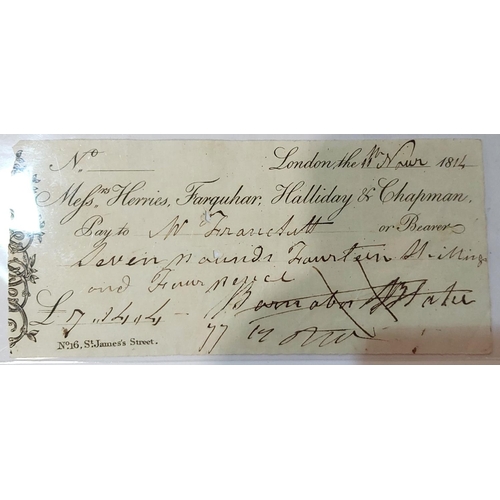 No
London, the 11th Novr 1814
Messrs Herries, Farquhar, Halliday & Chapman,
Pay to Mr or Bearer
Seven pounds Fourteen Shillings
and Four pence
£7..14..4 - Barnaba Blake
No. 16, St. James's Street.